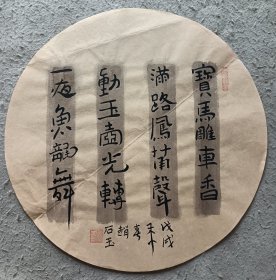 寶馬雕車香
滿路鳳簫聲
動玉壺光轉
一夜魚龍舞
戊戌